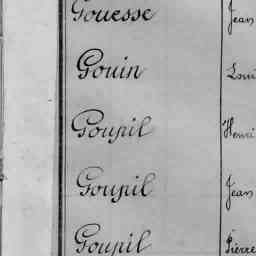 Gouesse Jean
Gouin Loui
Goupil Henri
Goupil Jean
Goupil Pierre